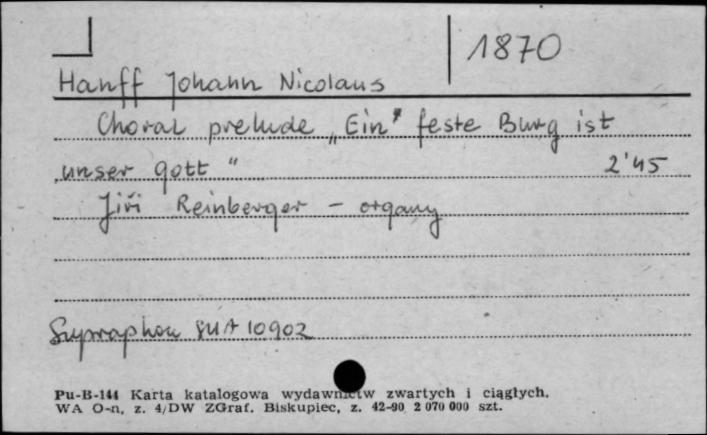 1870
Hanff Johann Nicolaus
Choral prelude „Ein" feste Burg ist
unser Gott " 2'45
Jiři Reinberger - organy
Supraphon SUA 10902
Pu-B-144 Karta katalogowa wydawnictw zwartych i ciągłych.
WA O-n, z. 4/DW ZGraf. Biskupiec, z. 42-90 2 070 000 szt.